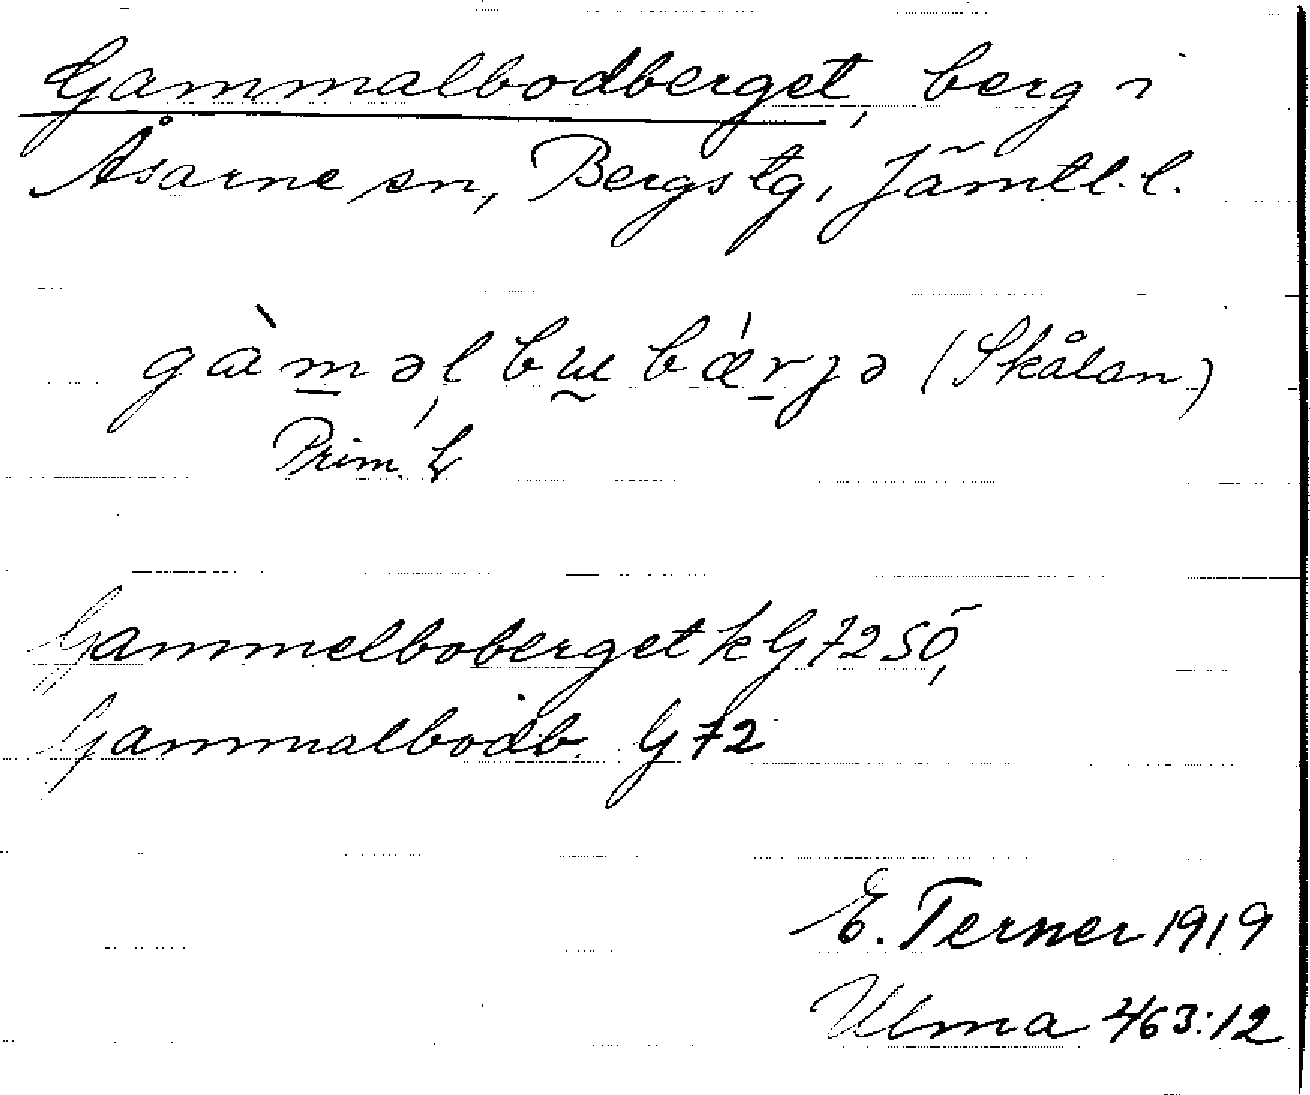 Gammalbodberget, berg i
Åsarne sn, Bergs tg, Jämtl. l.
gàməl bu bǽrjə (Skålan)
Prim.
Gammelboberget k G 72 SÖ,
Gammalbodb. G 72
E. Terner 1919
Ulma 463:12